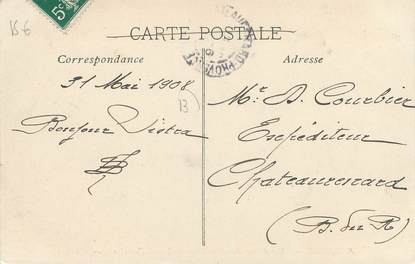 15 6
5c
CARTE POSTALE
Correspondance
Adresse
31 Mai 1908
13
Bonjour
Mr. D. Courbier
Expéditeur
Chateaurenard
(B. du R)